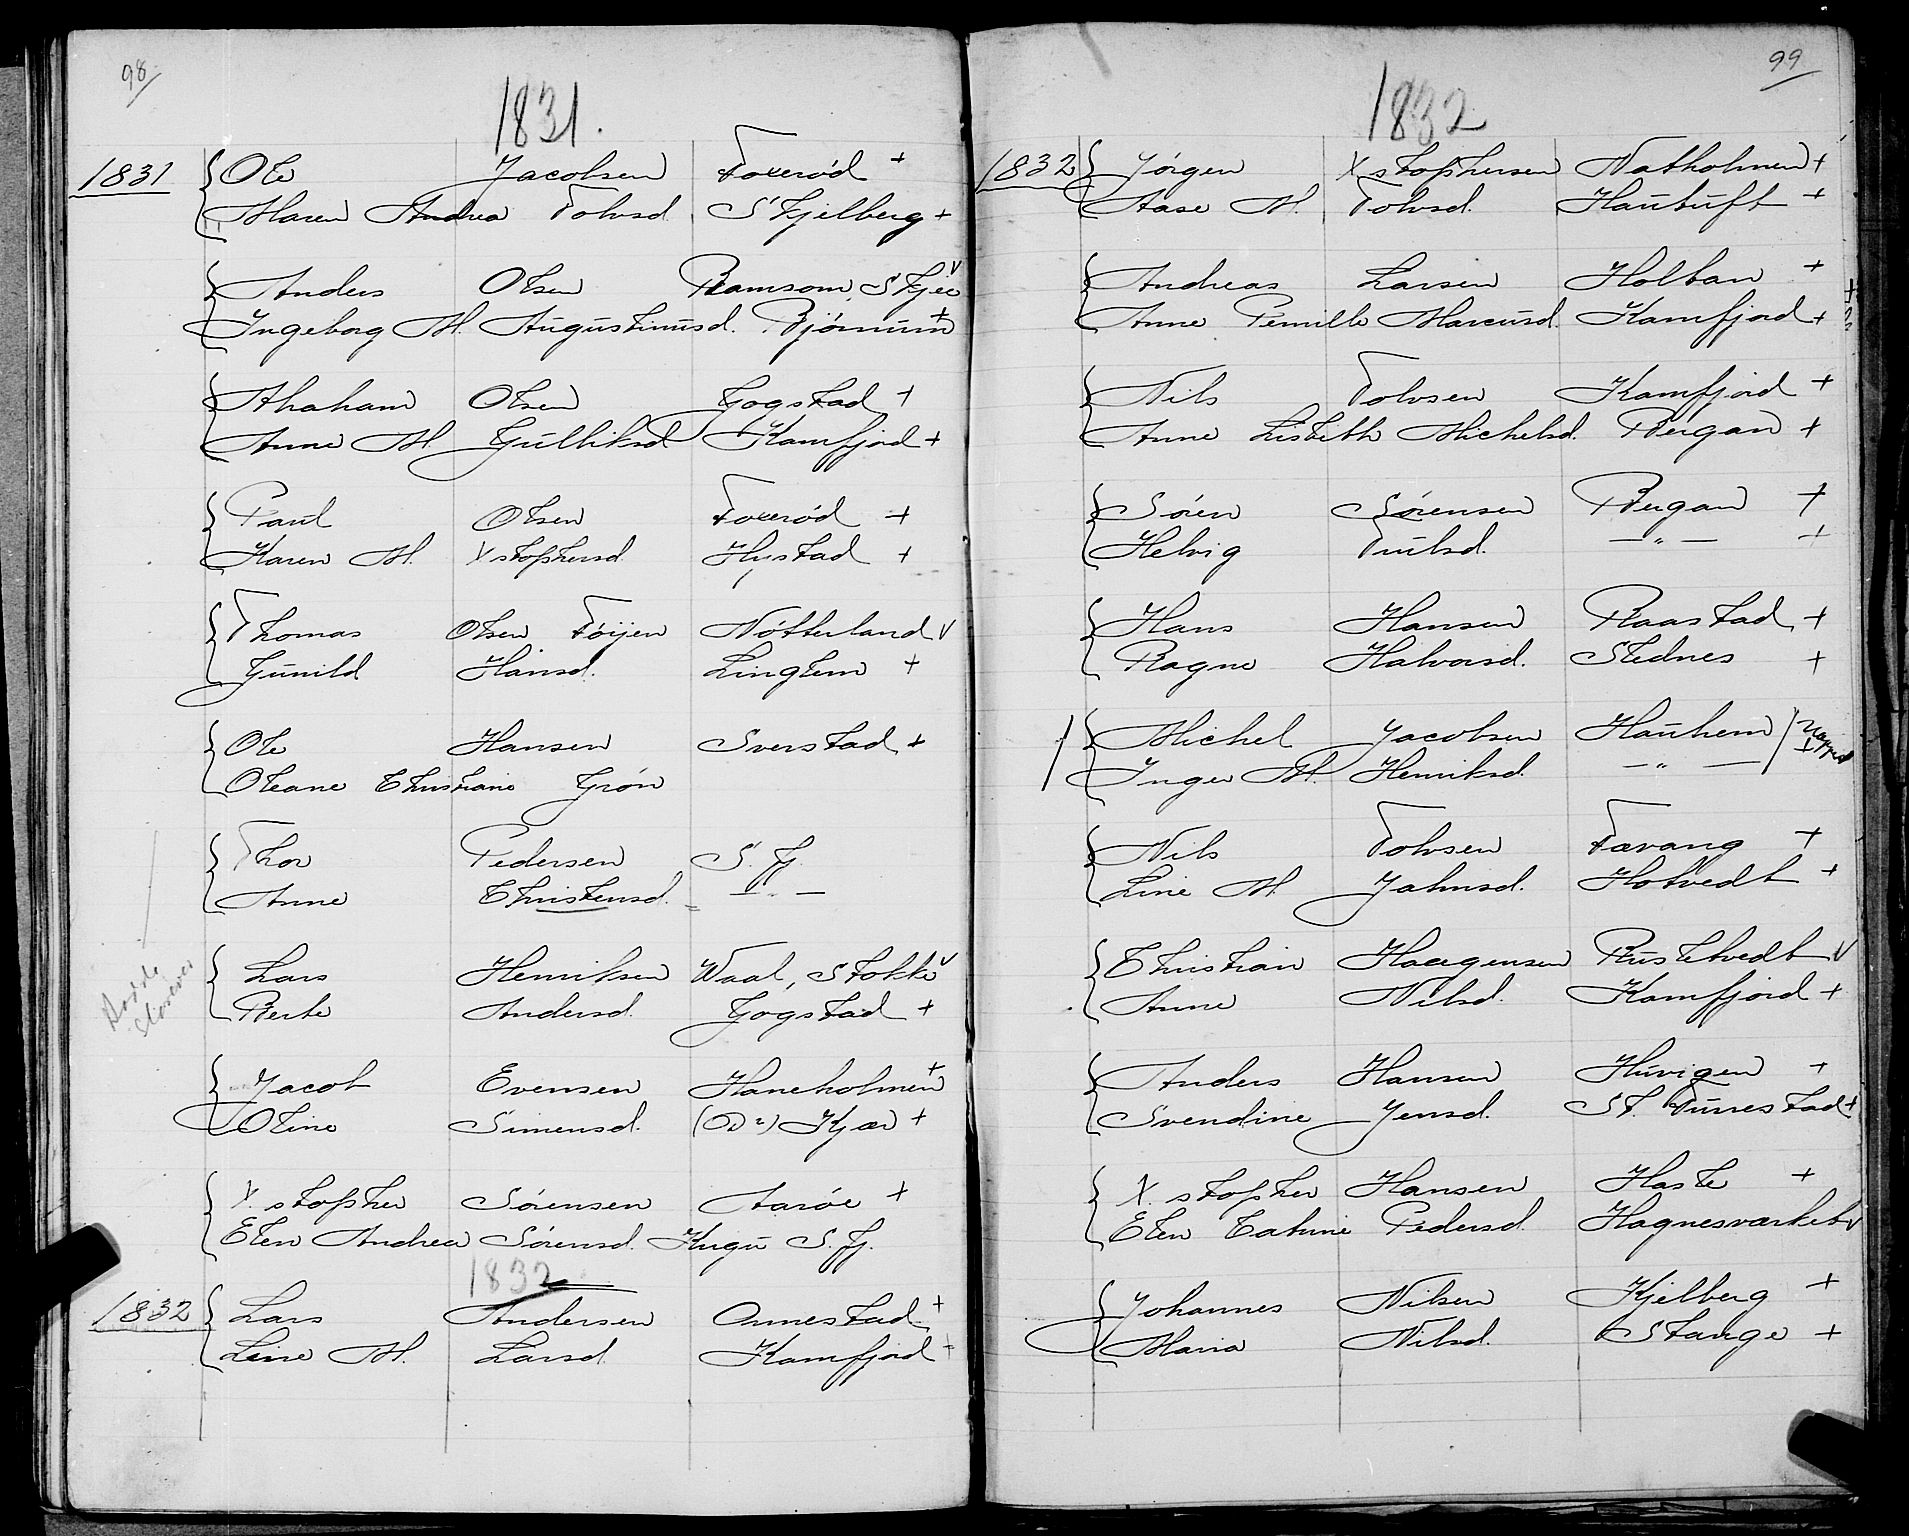 98
1831.
1831 Ole Jacobsen Foxerød +
Maren Andrea Tolvsd. Skjelberg +
Anders Olsen Ramsom, Skjee v
Ingeborg M. Augustinusd. Bjørnum +
Abraham Olsen Gogstad +
Anne M. Gulliksd Kamfjord +
Paul Olsen Foxerød +
Karen M. Xstophersd. Hystad +
Thomas Olsen Føijen Nötterland v
Gunild Hansd. Lingelem +
Ole Hansen Sverstad +
Oleane Christiane Grön
Thor Pedersen S. fj.
Anne Christensd. — " —
Lars Henriksen Waal, Stokke v
Berte Andersd. Gogstad +
Jacob Evensen Haneholmen +
Oline Simensd. Kjær +
X.stopher Sörensen Aaröe +
Elen Andrea Sörensd. S. fj.
1832
1832 Lars Andersen Onnestad +
Line M. Larsd. Kamfjord +
99
1832
1832 Jørgen Xstophersen Natholmen +
Aase M. Tolvsd. Hautuft +
Andreas Larsen Holtan +
Anne Pernille Marcusd. Kamfjord +
Nils Tolvsen Kamfjord +
Anne Lisbeth Michelsd. Bergan +
Sören Sörensen Bergan +
Helvig Paulsd. — " — +
Hans Hansen Raastad +
Ragne Halvorsd. Stednes +
Michel Jacobsen Hauhem
Inger M. Henriksd. — " —
Nils Tolvsen Tævang +
Line M. Jahnsd. Hotvedt +
Christian Haagensen Rustetvedt v
Anne Nilsd. Kamfjord +
Anders Hansen Huvigen +
Svendine Jensd. St. Furrestad +
X.stopher Hansen Hasle +
Elen Catrine Pedersd. Hagnesværket v
Johannes Nilsen Kjelberg +
Maria Nilsd. Stange +